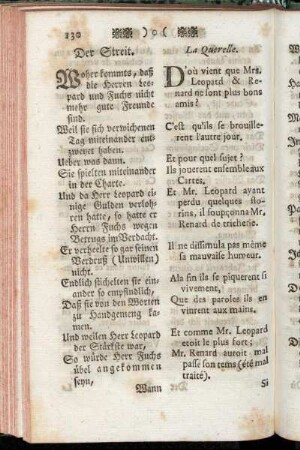 130
Der Streit.
Woher kommts, daß
die Herren Leo-
pard und Fuchs nicht
mehr gute Freunde
sind.
Weil sie sich verwichenen
Tag miteinander ent-
zweyet haben.
Ueber was dann.
Sie spielten miteinander
in der Charte.
Und da Herr Leopard ei-
nige Gulden verloh-
ren hatte, so hatte er
Herrn Fuchs wegen
Betrugs im Verdacht.
Er verheelte so gar seinen
Verdruß (Unwillen)
nicht.
Endlich stichelten sie ein-
ander so empfindlich,
Daß sie von den Worten
zu Handgemeng ka-
men.
Und weilen Herr Leopard
der Stärkste war,
So würde Herr Fuchs
übel angekommen
seyn,
Wann
La Querelle.
D'où vient que Mrs.
Leopard & Re-
nard ne sont plus bons
amis?
C'est qu'ils se brouille-
rent l'autre jour.
Et pour quel sujet?
Ils jouerent ensemble aux
Cartes,
Et Mr. Leopard ayant
perdu quelques flo-
rins, il soupçonna Mr.
Renard de tricherie.
Il ne dissimula pas même
sa mauvaise humeur.
A la fin ils se piquerent si
vivement,
Que des paroles ils en
vinrent aux mains.
Et comme Mr. Leopard
etoit le plus fort;
Mr. Renard auroit mal
passé son tems (été mal
traité).
Si